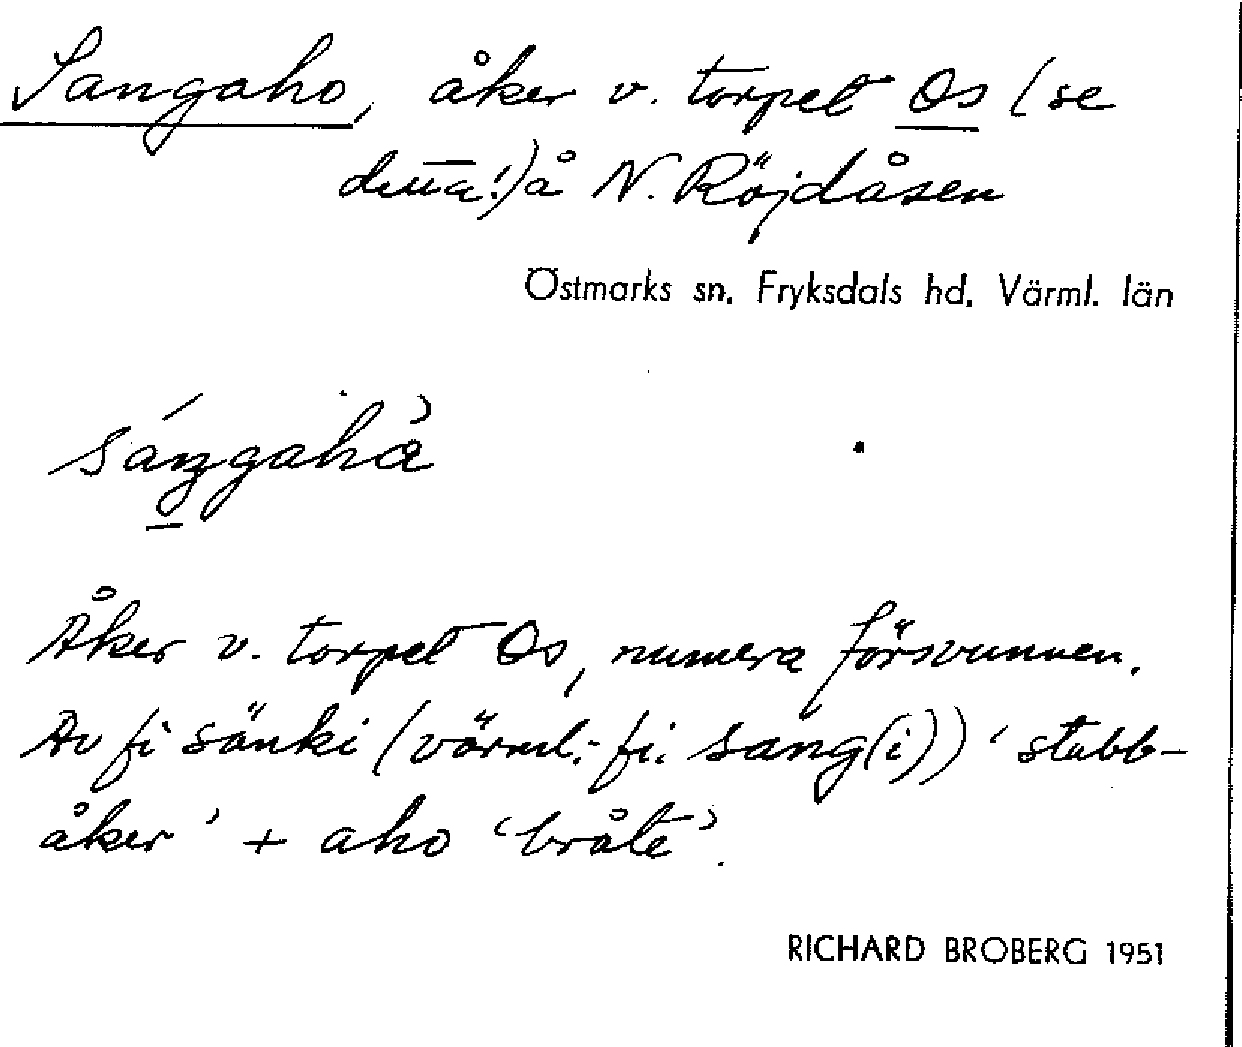 Sangaho, åker v. torpet Os (se
detta!) å N. Röjdåsen
Östmarks sn. Fryksdals hd. Värml. län
Åker v. torpet Os, numera försvunnen.
Av fi sänki (värml.-fi. sang(i)) 'stubb-
åker' + aho 'bråte'.
RICHARD BROBERG 1951